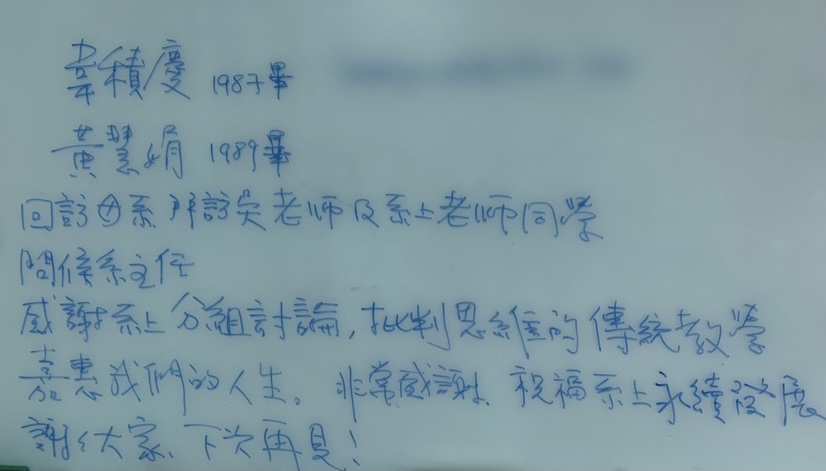 韋積慶 1987畢
黃慧娟 1989畢
回訪母系 拜訪吳老师及系上老师同學
問候系主任
感謝系上分組討論,批判思維的傳統教學
嘉惠我們的人生。非常感謝、祝福系上永續發展
謝謝大家、下次再見!